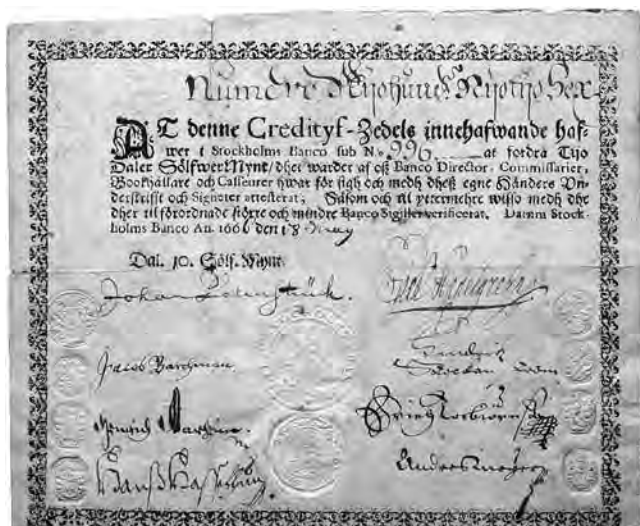 Numero Nijohundr Nijotijo Sex
AT denne Credityf-Zedels innehafwande haf-
wer i Stockholms Banco sub N.o 996 at fordra Tijo
Daler Sölfwer Mynt / dhet warder af oß Banco Director, Commissarier,
Bookhållare och Casseurer hwar för sigh och medh dheß egne Händers Vn-
derskrifft och Signeter attesterat, Såsom och til yttermehre wisso medh dhe
dher til förordnade större och mindre Banco Sigiller verificerat. Datum Stock-
holms Banco An. 1666 den 18 May
Dal. 10. Sölf. Mynt.
Johan
Jacob
Hinrich
Anders